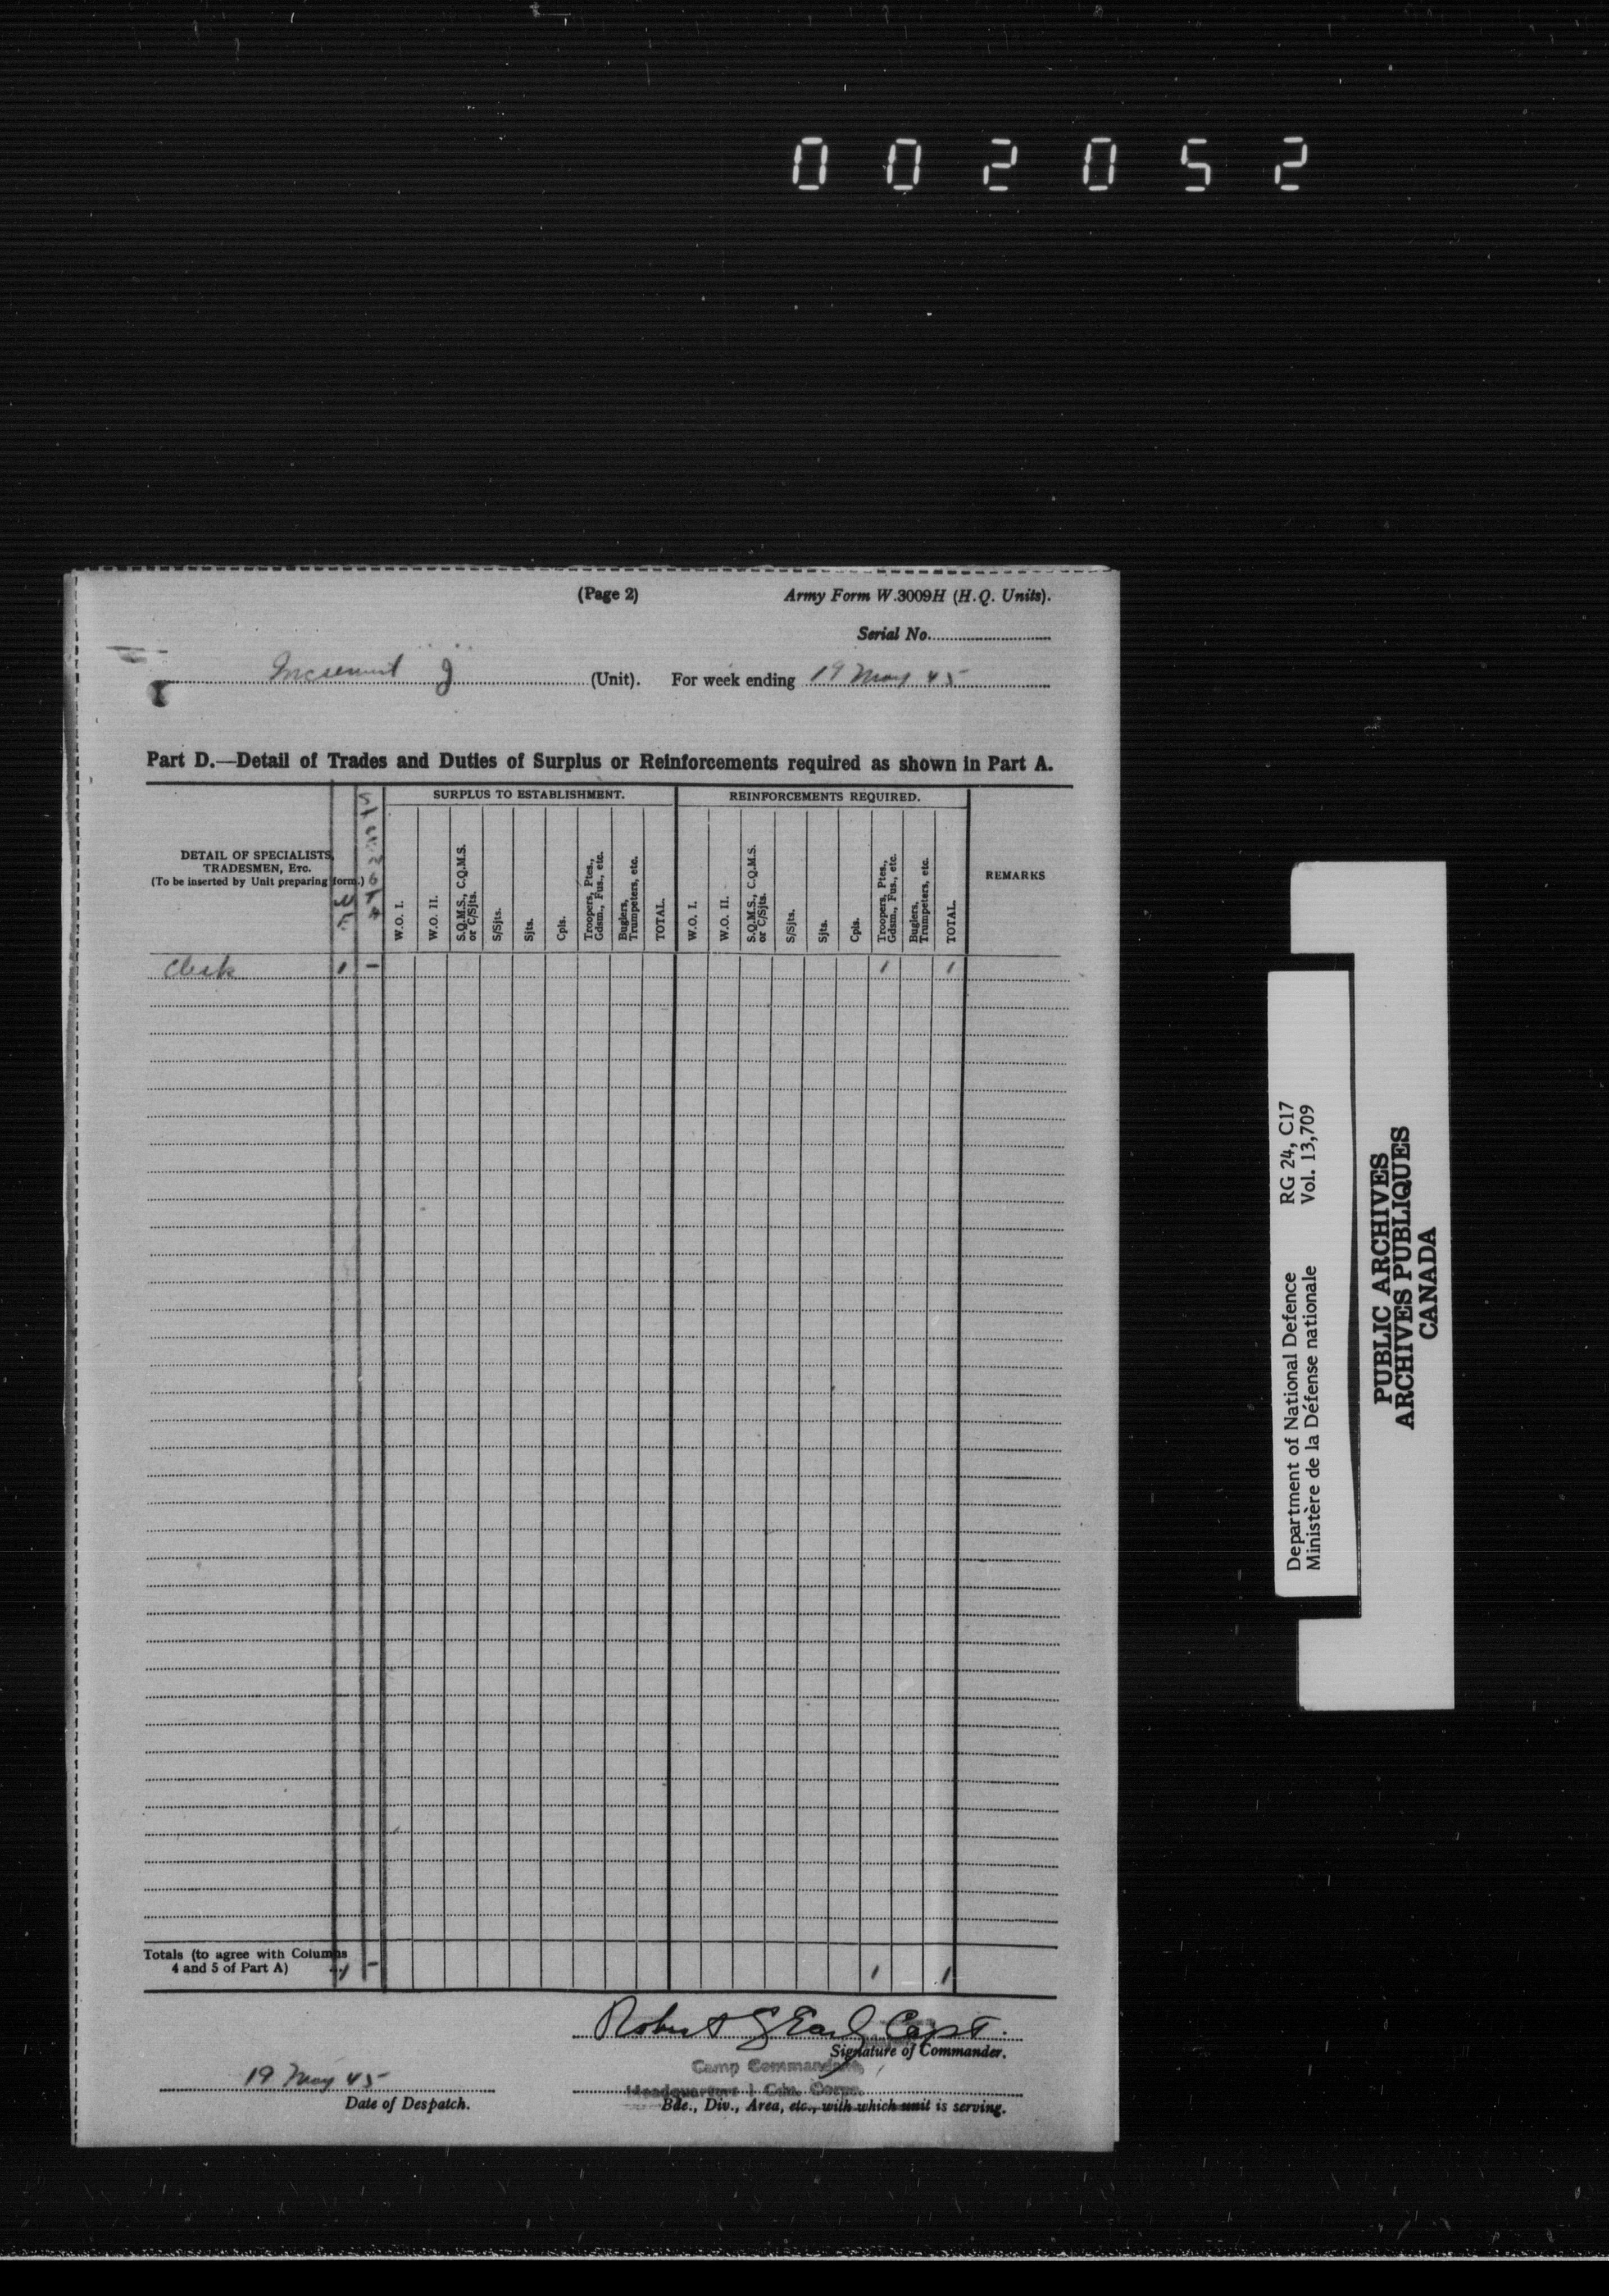 002052
(Page 2)
Army Form W.3009H (H.Q. Units).
Serial No.
Increment J (Unit). For week ending 19 May 45
Part D.—Detail of Trades and Duties of Surplus or Reinforcements required as shown in Part A.
DETAIL OF SPECIALISTS,
TRADESMEN, Etc.
(To be inserted by Unit preparing form.)
SURPLUS TO ESTABLISHMENT.
W.O. I.
W.O. II.
S.Q.M.S., C.Q.M.S.
or C/Sjts.
S/Sjts.
Sjts.
Cpls.
Troopers, Ptes.,
Gdsm., Fus., etc.
Buglers,
Trumpeters, etc.
TOTAL.
REINFORCEMENTS REQUIRED.
W.O. I.
W.O. II.
S.Q.M.S., C.Q.M.S.
or C/Sjts.
S/Sjts.
Sjts.
Cpls.
Troopers, Ptes.,
Gdsm., Fus., etc.
Buglers,
Trumpeters, etc.
TOTAL.
REMARKS
Clerk 1 - 1 1
Totals (to agree with Columns
4 and 5 of Part A) 1 - 1 1
Robert G Earl Capt.
Signature of Commander.
Camp Commandant,
Headquarters 1 Cdn. Corps.
19 May 45
Date of Despatch.
Bde., Div., Area, etc., with which unit is serving.
Department of National Defence RG 24, C17
Ministère de la Défense nationale Vol. 13,709
PUBLIC ARCHIVES
ARCHIVES PUBLIQUES
CANADA